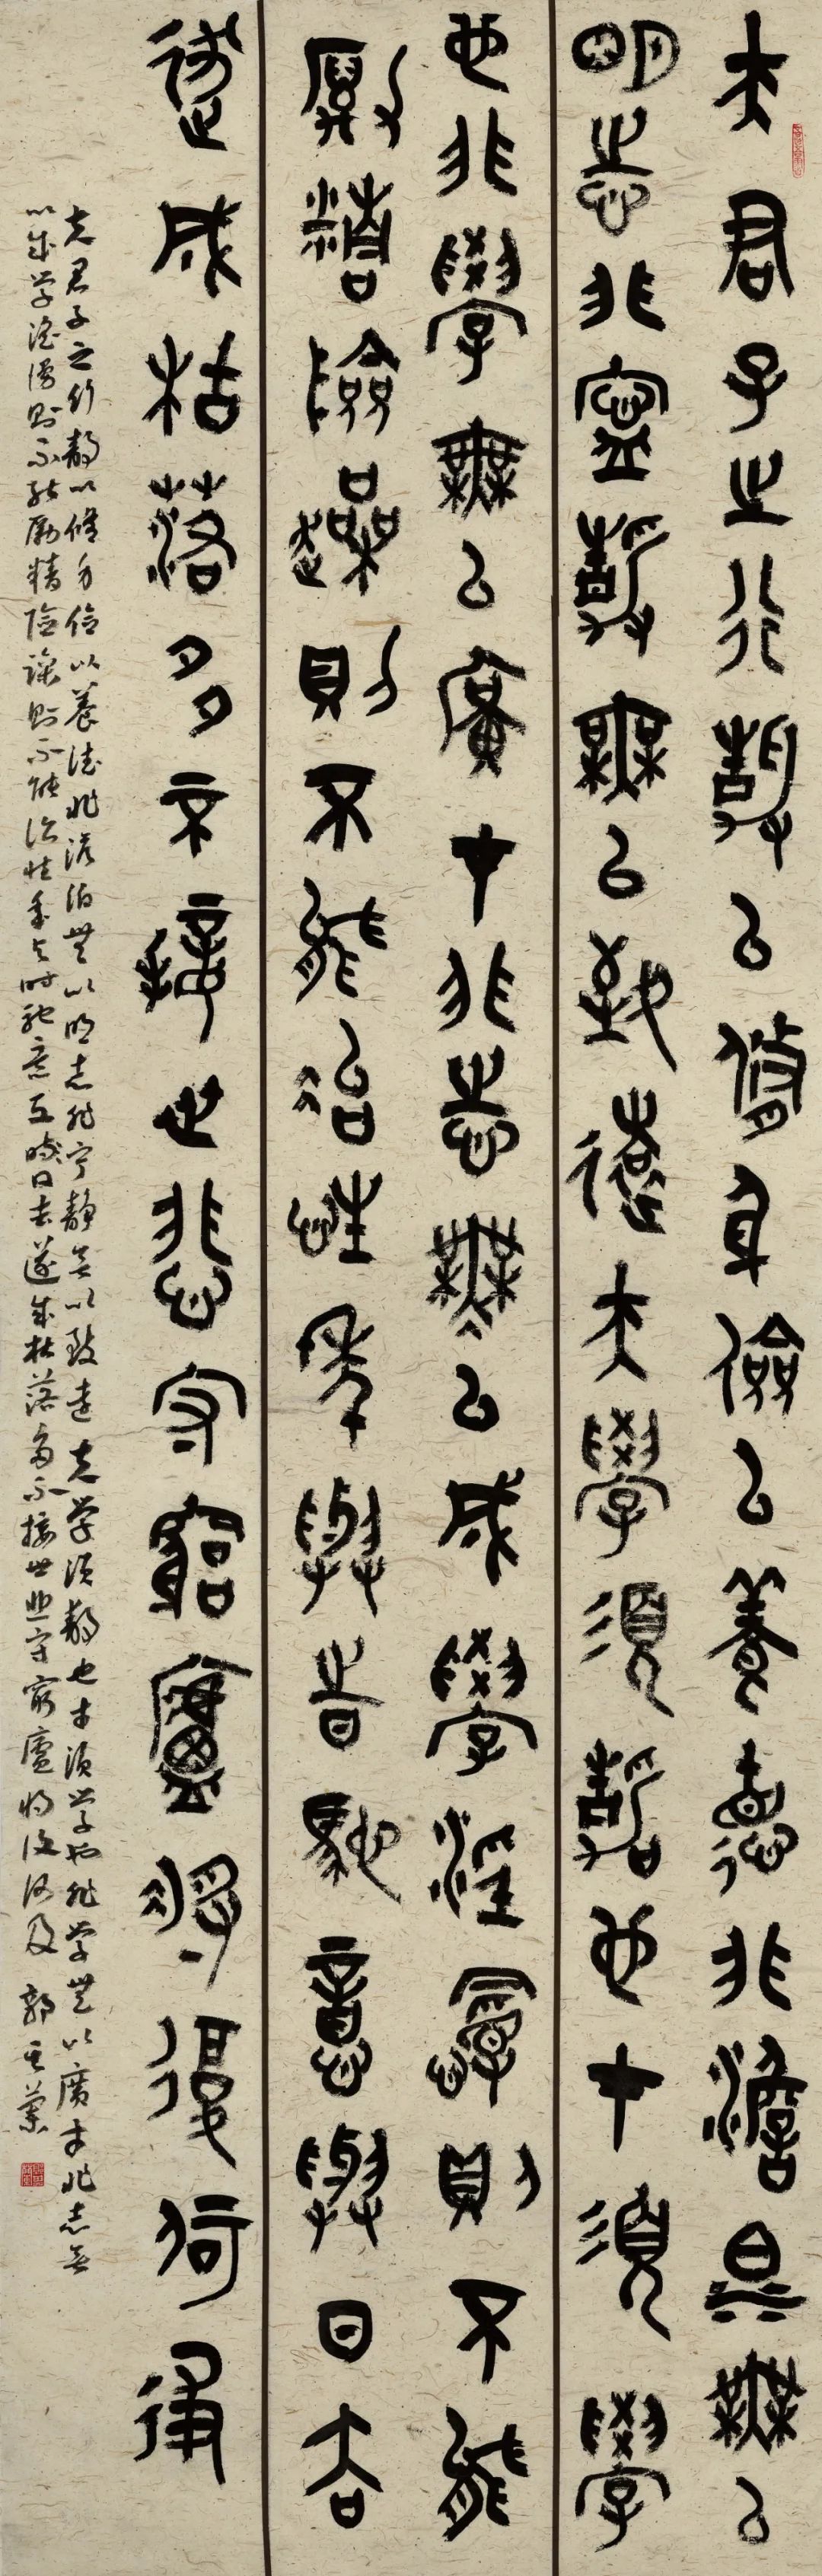 夫君子之行靜以修身儉以養德非澹泊無以
明志非寧靜無以致遠夫學須靜也才須學
也非學無以廣才非志無以成學淫慢則不能
勵精險躁則不能治性年與時馳意與日去
遂成枯落多不接世悲守窮廬將復何及
夫君子之行静以修身俭以养德非淡泊無以明志非宁静無以致远夫学须静也才须学也非学無以廣才非志無
以成学淫慢则不能励精险躁则不能治性年与时驰意与日去遂成枯落多不接世悲守穷廬将復何及 郭